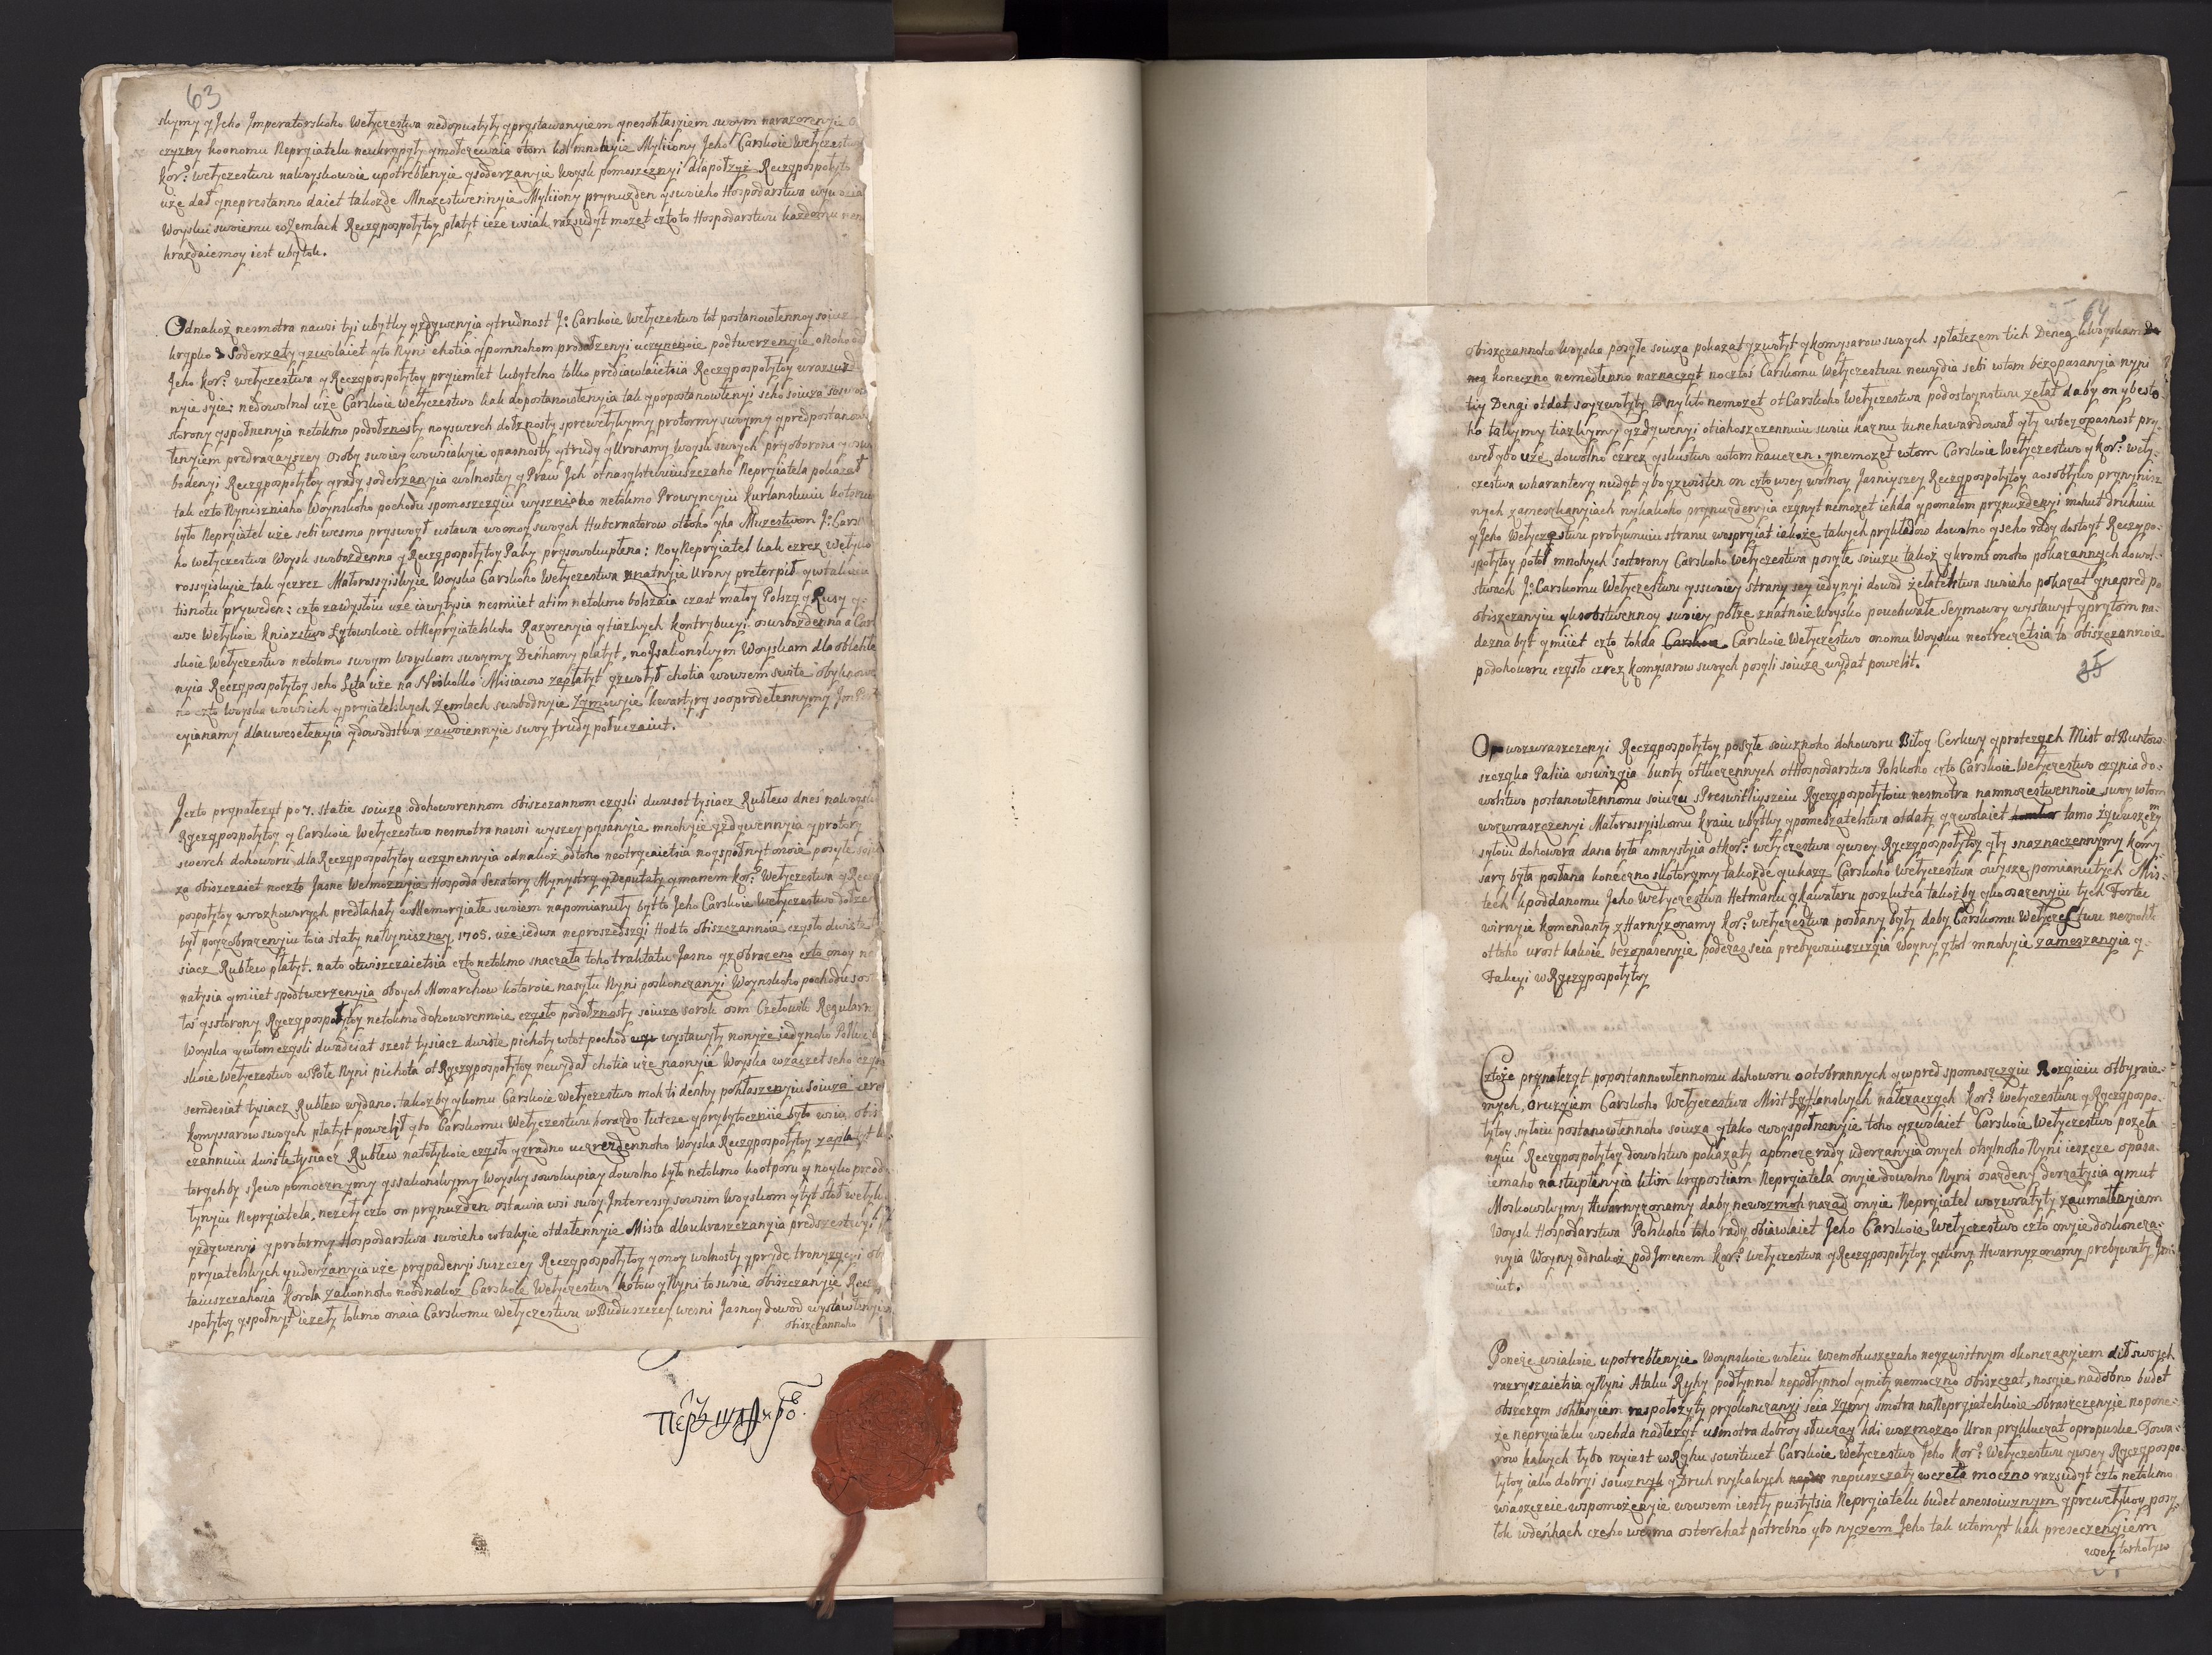 63
skymy y Jeho Imperatorskoho Wełyczestwa nedopustyty
czyzny koonomu Nepryiatelu neukrypyty otom koł mnohyie Myliiony Jeho Carskoie Wełyczestwo
kor:o wełyczestwu nawoyskowoie upotreblenyie ysoderzanyie woysk pomoszcznyi dlapołzyż Reczypospołytoy
uże dał yneprestanno daiet takożde Mnożestwennyie Myliiony prynużden yswoieho Hospodarstwa
Woysku swoiemu wZemlach Reczypospołytoy płatyt ieże wsiak razsudyt możet czto to Hospodarstwu każdomu
hrażdaiemoy iest ubytok.
Odnakoż nesmotra nawsi tyi ubytky yżdywenyia ytrudnost J:o Carskoie Wełyczestwo tot postanowłennoy soiuz
krypko Soderzaty yzwolaiet yto Nyni chotia ypomnohom prodołżenyi uczynenoie podtwerżenyie onoho od
Jeho kor:o wełyczestwa y Reczypospołytoy pryiemlet lubytelno tolko prediawlaietsia Reczypospołytoy wrazsużde
nyie syie: nedowolnol uże Carskoie Wełyczestwo kak dopostanowłenyia tak ypopostanowłenyi seho soiuza soswoiey
storony yspołnenyia netokmo podołżnosty noyswerch dołżnosty sprewełykymy protormy swoymy ypredpostanow
łenyiem predrażayszey Osoby swoiey wowsiakyie opasnosty ytrudy yUronamy woysk swoych pryoborony yoswo
bodenyi Reczypospołytoy yrady soderzanyia wolnostey y Praw Jch otnasylstwuiuszczaho Nepryiatela pokazał
tak czto Nynisznialo Woynskoho pochodu spomoszczyiu wyszniaho netokmo Prowyncyiu Kurlanskuiu kotoruiu
było Nepryiatel uże sebi wesma pryswoył ustawa wonoy swoych Hubernatorow otłoho yha Mużestwom J:o Carsko
ho wełyczestwa Woysk swobożdenna y Reczypospołytoy Paky prysowokuplena: Noy Nepryiatel kak czrez Wełyko
rossyiskyie tak yczrez Małorossyiskyie Woyska Carskoho Wełyczestwa znatnyie Urony preterpił ywtakuiu
tisnotu prywedem: czto zawysłoiu uże iawytysia nesmiiet atim netokmo bolszaia czast małoy Polszy y Rusy y:
wse Wełykoie Kniazstwo Łytowskoie otNepryiatelskoho Razorenyia ytiażkych kontrybucyi oswobożdenna a Car
skoie Wełyczestwo netokmo swoym woyskam swoymy Denhamy płatyt, noysakonskym Woyskam dla oblehcze
nyia Reczypospołytoy seho Lita uże na Neskolko Misiacow zapłatyt yzwołył chotia wowsem switi obyknowen
no czto Woyska wowsich ypryiatelskych Zemlach swobodnyie Zymowyie kwartyry soopredełennymy Jm Porta
cyianamy dlauweselenyia ydowodstwa zawoiennyie swoy trudy połuczaiut.
Jczto prynależyt po 7. statie soiuza odohoworennom obiszczannom czysli dwusot tysiacz Rublew dnes nawoysko
Ryczypospołytoy y Carskoie Wełyczestwo nesmotra nawsi wyszey pysanyie mnohyie yżdywennyia yprotory
swerch dohoworu dla Reczypospołytoy uczynennyia odnakoż odtoho neotryczaietsia noyspołnyt onoie posyłe soiu
za obiszczaiet noczto Jasne Wełmożnyie Hospoda Senatory Mynystry yDeputaty ymanem kor:o Wełyczestwa yReczy
pospołytoy wrozhoworych predłahaly wMemoryiale swoiem napomianuły byłto Jeho Carskoie Wełyczestwo dołżen
był poyzobrażenyiu toia staty naNyniszney 1705. uże iedwa neproszedszyi Hod to obiszczannoie czysło dwiste ty
siacz Rublew płatyt. nato otwiszczaietsia czto netokmo snaczała toho traktatu Jasno yzobrażeno czto onoy
natysia ymiiet spodtwerżenyia oboych Monarchow kotoroie nasyłu Nyni poskonczanyi Woynskoho pochodu sost
łos yzstorony Ryczypospołytoy netokmo dohoworennoie czysło podołżnosty soiuza sorok osm Czełowik Regularn
Woyska ywtom czysli dwadciat szest tysiacz dwiste pichoty wtot pochod wystawyty nonyże iedynoho Połku
skoie Wełyczestwo wPole Nyni pichota ot Ryczypospołytoy newydał chotia uże naonyie Woyska wzaczet seho czysła
semdesiat tysiacz Rublew wydano. takoż by ykomu Carskoie Wełyczestwo moh ti denhy pohłaszenyiu soiuza czrez
komyssarow swoych płatyt powelił ybo Carskomu Wełyczestwu horazdo łutcze ypryłuczniie było wsiu obisz
czannuiu dwiste tysiacz Rublew natołykoie czysło yzradno uczreżdennoho Woyska Reczypospołytoy zapłatyt ko
torychby sJeiu pomocznymy yssakonskymy Woysky sowokupiay dowolno było netokmo kootporu y noykoprodo
łynyiu Nepryiatela, neżely czto on prynużden ostawia wsi swoy Interessy sowsim woyskom ytyt stoł wełyky
yżdywenyi yprotormy Hospodarstwa swoieho wtakyie otdalennyie Mista dlaukraszczanyia predszestwyi
pryiatelskych yuderżanyia uże prypadenyi suszczey Reczypospołytoy yonoy wolnosty yprydc tronyzacyi obi
taiuszczahosia Korola Zakonnoho noodnakoż Carskoie Wełyczestwo hotow yNyni to swoie obiszczanyie Reczy
społytoy yspołnyt ieżeły tokmo onaia Carskomu Wełyczestwu wBuduszczey wesni Jasnoy dowod wystawlenyia
obiszczannoho
Перъ Шафіровъ.
35 64
obiszczannoho Woyska posyłe soiuza pokazat yzwołyt ykomysarow swoych spłatczem tich Deneg kwoyskam
koneczno nemedlenno naznaczyt nocztoś Carskomu Wełyczestwu newydia sebi wtom bezopasanyia nyni
tiy Dengi otdat soyzwołyty to nykto nemożet ot Carskoho Wełyczestwa podostoynstwu żełat daby on ybesto
ho takymy tiażkymy yżdywenyi otiahoszczennuiu swoiu kaznu tunehawardował yły wbezopasnost pry-
weł ybo uże dowolno czrez yskustwo wtom nauczen. ynemożet wtom Carskoie Wełyczestwo y kor:o wely-
czestwa wharantery nudyt ybo yzwisten on czto wsey wolnoy Jasniyszey Reczypospołytoy aosobływo prynynisz
nych zameszkanyiach nykakoho prynużdenyia czynyt nemożet iehda ypomałom prynużdenyi mohut druhuiu
yJeho Wełyczestwu protywnuiu stranu wospryiat iakoże takych prykładow dowolno yseho rady dostoyt Reczypo-
społytoy potoł mnohych sostorony Carskoho Wełyczestwa posyłe soiuzu takoż ykromi onoho pokazannych dowol-
stwach J:o Carskomu Wełyczestwu yssswoiey strany sey iedynyi dowod żelatelstwa swoieho pokazat ynapred po
obiszczanyiu ykosobstwennoy swoiey polze znatnoie Woysko pouchwałe Seymowoy wystawyt yprytom na-
deżna byt ymiiet czto tohda Carskoie Wełyczestwo onomu Woysku neotreczetsia to obiszczannoie
podohoworu czysło czrez komysarow swoych posyli soiuza wydat powelit.
35
O wozwraszczenyi Reczypospołytoy posyłe soiuznoho dohoworu Biłoy Cerkwy yprotczych Mist ot Buntow-
szczyka Paliia wswizyia bunty otłuczennych otHospodarstwa Polskoho czto Carskoie Wełyczestwo czynia do-
wolstwo postanowłennomu soiuzu sPreswitłiyszeiu Ryczypospołytoiu nesmotra namnożestwennoie swoy wtom
wozwraszczenyi Małorossyiskomu kraiu ubytky ypomeszatelstwa otdaty yzwolaiet tamo żywuszczym
syłoiu dohowora dana była amnystyia otkor:o wełyczestwa ywsey Ryczypospołytoy yły snaznaczennymy komy-
sary była posłana koneczno skotorymy takożde yukazy Carskoho Wełyczestwa owyższe pomianutych Mis-
tech kpoddanomu Jeho Wełyczestwa Hetmanu yKawaleru poszlutca takożby ykoosażenyiu tych Fortec
wirnyie komendanty zHarnyzonamy kor:o wełyczestwa posłany były daby Carskomu Wełyczestwu nezmohło
ottoho urost kakoie bezopasenyie podczas seia prebywaiuszczyia Woyny ytoł mnohyie zameszanyia y-
Fakcyi wRyczypospołytoy
Cztoże prynależyt popostannowłennomu dohoworu ootobrannych ywpred spomoszczyiu Bożyieiu otbyraie-
mych, orużyiem Carskoho Wełyczestwa Mist Łyflanskych należaczych kor:o wełyczestwu y Ryczypospo-
łytoy syłoiu postanowłennoho soiuza ytako wwyspołnenyie toho yzwolaiet Carskoie Wełyczestwo pożela
nyiu Reczypospołytoy dowolstwo pokazaty aponeże rady uderżanyia onych otsylnoho Nyni ieszcze opasa-
iemaho nastuplenyia ktim krypostiam Nepryiatela onyie dowolno Nyni osażdeny derżatysia ymut
Moskowskymy Hwarnyzonamy daby newozmoh nazad onyie Nepryiatel wozwratyty zaumałenyiem
Woysk Hospodarstwa Polskoho toho rady obiawlaiet Jeho Carskoie Wełyczestwo czto onyie doskoncza-
nyia Woyny odnakoż podJmenem kor:o wełyczestwa yReczypospołytoy ystimy Hwarnyzonamy prebywaty Jmi-
iut.
Poneże wsiakoie upotreblenyie Woynskoie woleiu wsemohuszczaho neyzwistnym okonczanyiem dił swoych
razryszaietsia yNyni Ataku Ryhy podłynnol nepodłynnol ymity nemoczno obiszczat, nosyie nadobno budet
obszczym sohłasyiem raspołożyty pryokonczanyi seia Zymy smotra naNepryiatelskoie obraszczenyie nopone-
że nepryiatelu wsehda nadleżyt usmotra dobroy słuczay kdi wozmożno Uron prykluczat opropuske Towa-
row kakych łybo nyiest wRyhu sowituiet Carskoie Wełyczestwo Jeho kor:o Wełyczestwu ywsey Ryczypospo-
łytoy iako dobryi soiuznyk yDruh nykakych nepuszczaty wczeła moczno razsudyt czto netokmo
wiaszczeie wspomożenyie wowsem iestły pustytsia Nepryiatelu budet anessoiuznym yprewełykoy poży-
tok wdeńhach czeho wesma osterehat potrebno ybo nyczem Jeho tak utomyt kak preseczenyiem
wsey torhowły